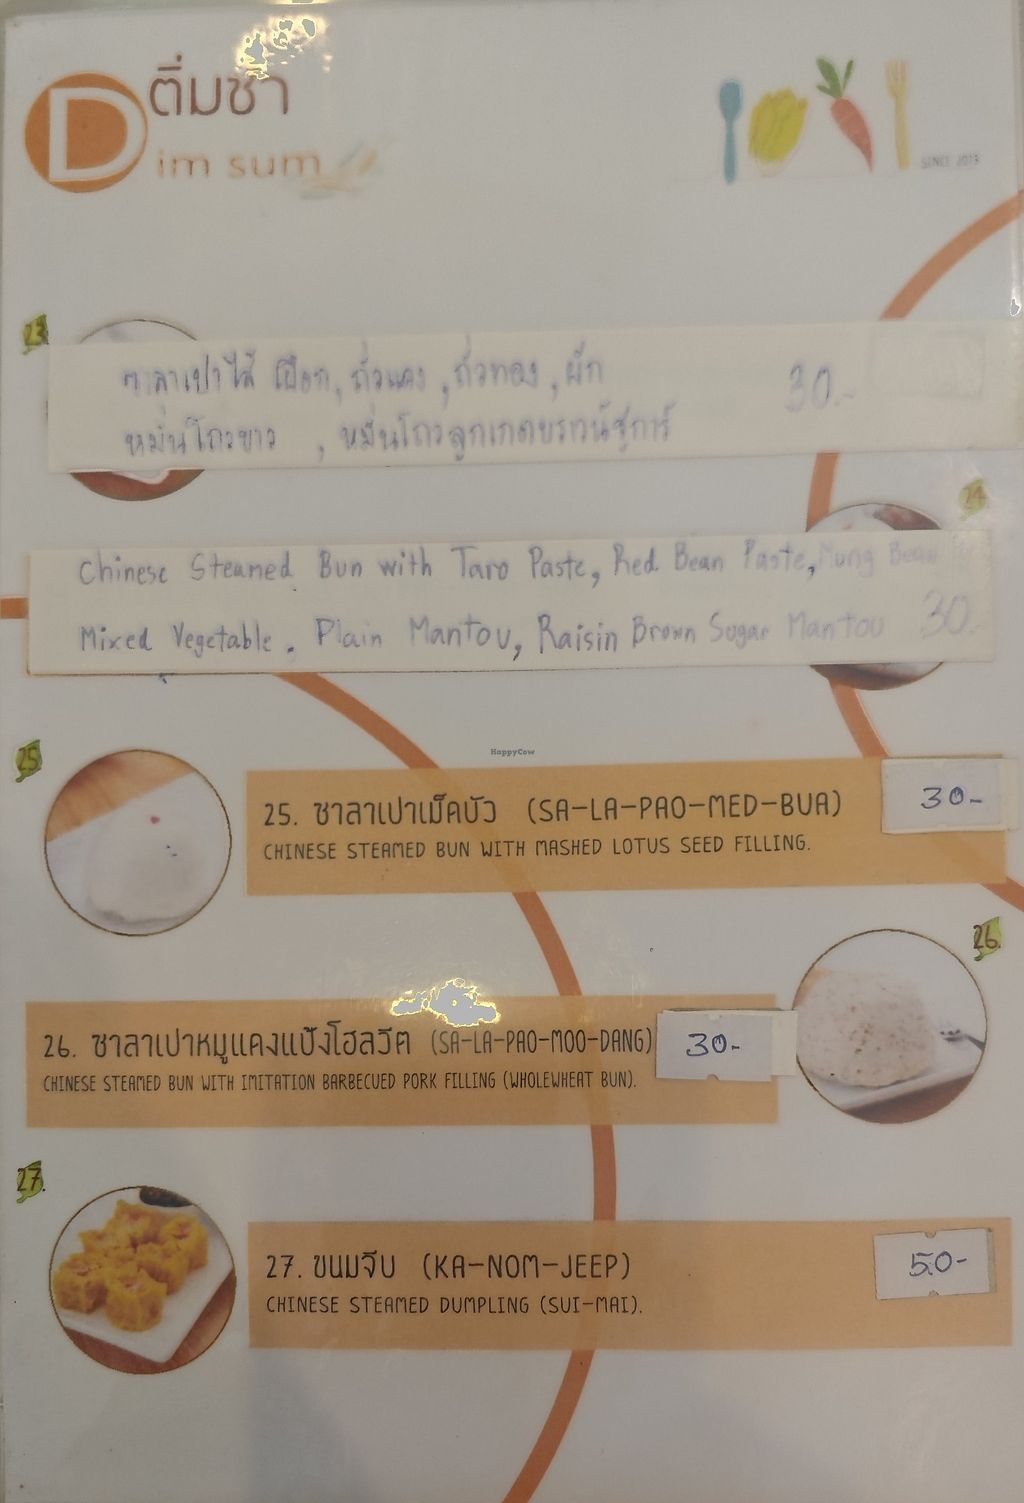 ติ่มซำ
Dim sum
SINCE 2013
23
ซาลาเปาไส้ เผือก, ถั่วแดง, ถั่วทอง, ผัก 30.-
หมั่นโถวขาว , หมั่นโถวลูกเกดบราวน์ชูการ์
24
Chinese Steamed Bun with Taro Paste, Red Bean Paste, Mung Bean
Mixed Vegetable. Plain Mantou, Raisin Brown Sugar Mantou 30.-
25
25. ซาลาเปาเม็ดบัว (SA-LA-PAO-MED-BUA) 30-
CHINESE STEAMED BUN WITH MASHED LOTUS SEED FILLING.
HappyCow
26.
26. ซาลาเปาหมูแดงแป้งโฮลวีต (SA-LA-PAO-MOO-DANG) 30-
CHINESE STEAMED BUN WITH IMITATION BARBECUED PORK FILLING (WHOLEWHEAT BUN).
27.
27. ขนมจีบ (KA-NOM-JEEP) 50-
CHINESE STEAMED DUMPLING (SUI-MAI).